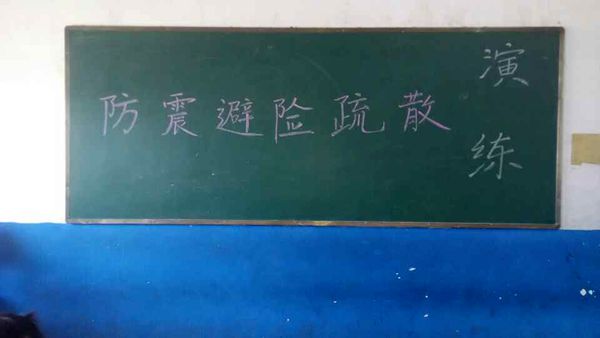 防震避险疏散
演
练